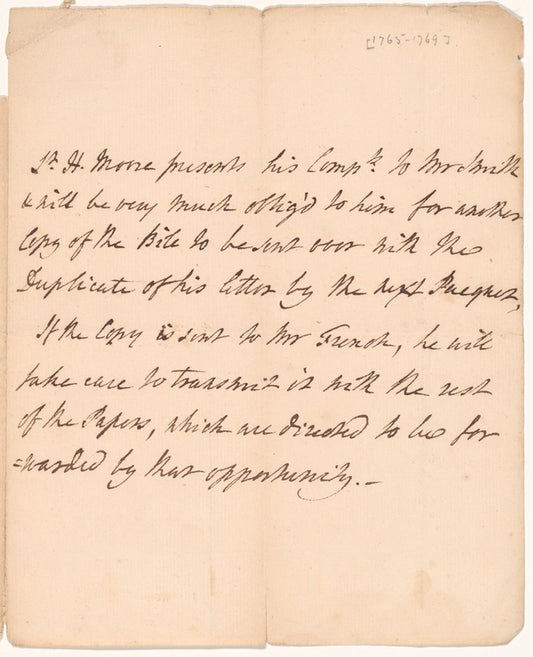 [1765-1769]
Sr. H. Moore presents his Compts. to Mr Smith
& will be very much oblig'd to him for another
Copy of the Bill to be sent over with the
Duplicate of his letter by the next Pacquet,
If the Copy is sent to Mr French, he will
take care to transmit it with the rest
of the Papers, which are directed to be for
=warded by that opportunity.–